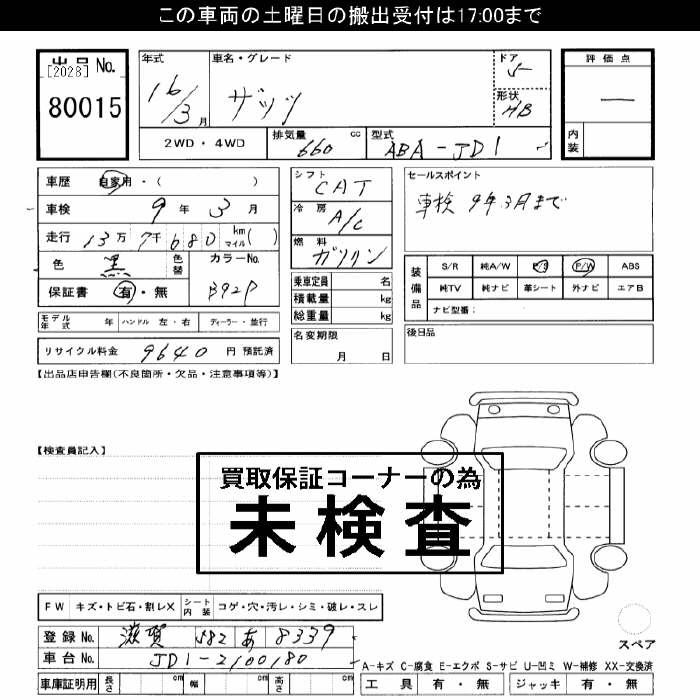 この車両の土曜日の搬出受付は17:00まで
出品No.
[2028]
80015
年式
16/3月
車名・グレード
ザッツ
ドア
5
形状
HB
評価点
―
内装
2WD・4WD
排気量 660 cc
型式 ABA-JD1
車歴 自家用・( )
車検 9年3月
走行 13万7千680 km マイル( )
色 黒 色替 カラーNo.
保証書 有・無 B92P
シフト
CAT
冷房
A/C
燃料
ガソリン
セールスポイント
車検9年3月まで
乗車定員 名
積載量 kg
総重量 kg
装備品
S/R 純A/W P/S P/W ABS
純TV 純ナビ 革シート 外ナビ エアB
ナビ型番:
モデル年式 年 ハンドル 左・右 ディーラー・並行
名変期限
月 日
後日品
リサイクル料金 9640 円 預託済
【出品店申告欄(不良箇所・欠品・注意事項等)】
【検査員記入】
買取保証コーナーの為
未検査
FW キズ・トビ石・割レX シート内装 コゲ・穴・汚レ・シミ・破レ・スレ
登録No. 滋賀 582 あ 8339
車台No. JD1-2100180
スペア
A-キズ C-腐食 E-エクボ S-サビ U-凹ミ W-補修 XX-交換済
車庫証明用 長さ cm 幅 cm 高さ cm
工具 有・無 ジャッキ 有・無